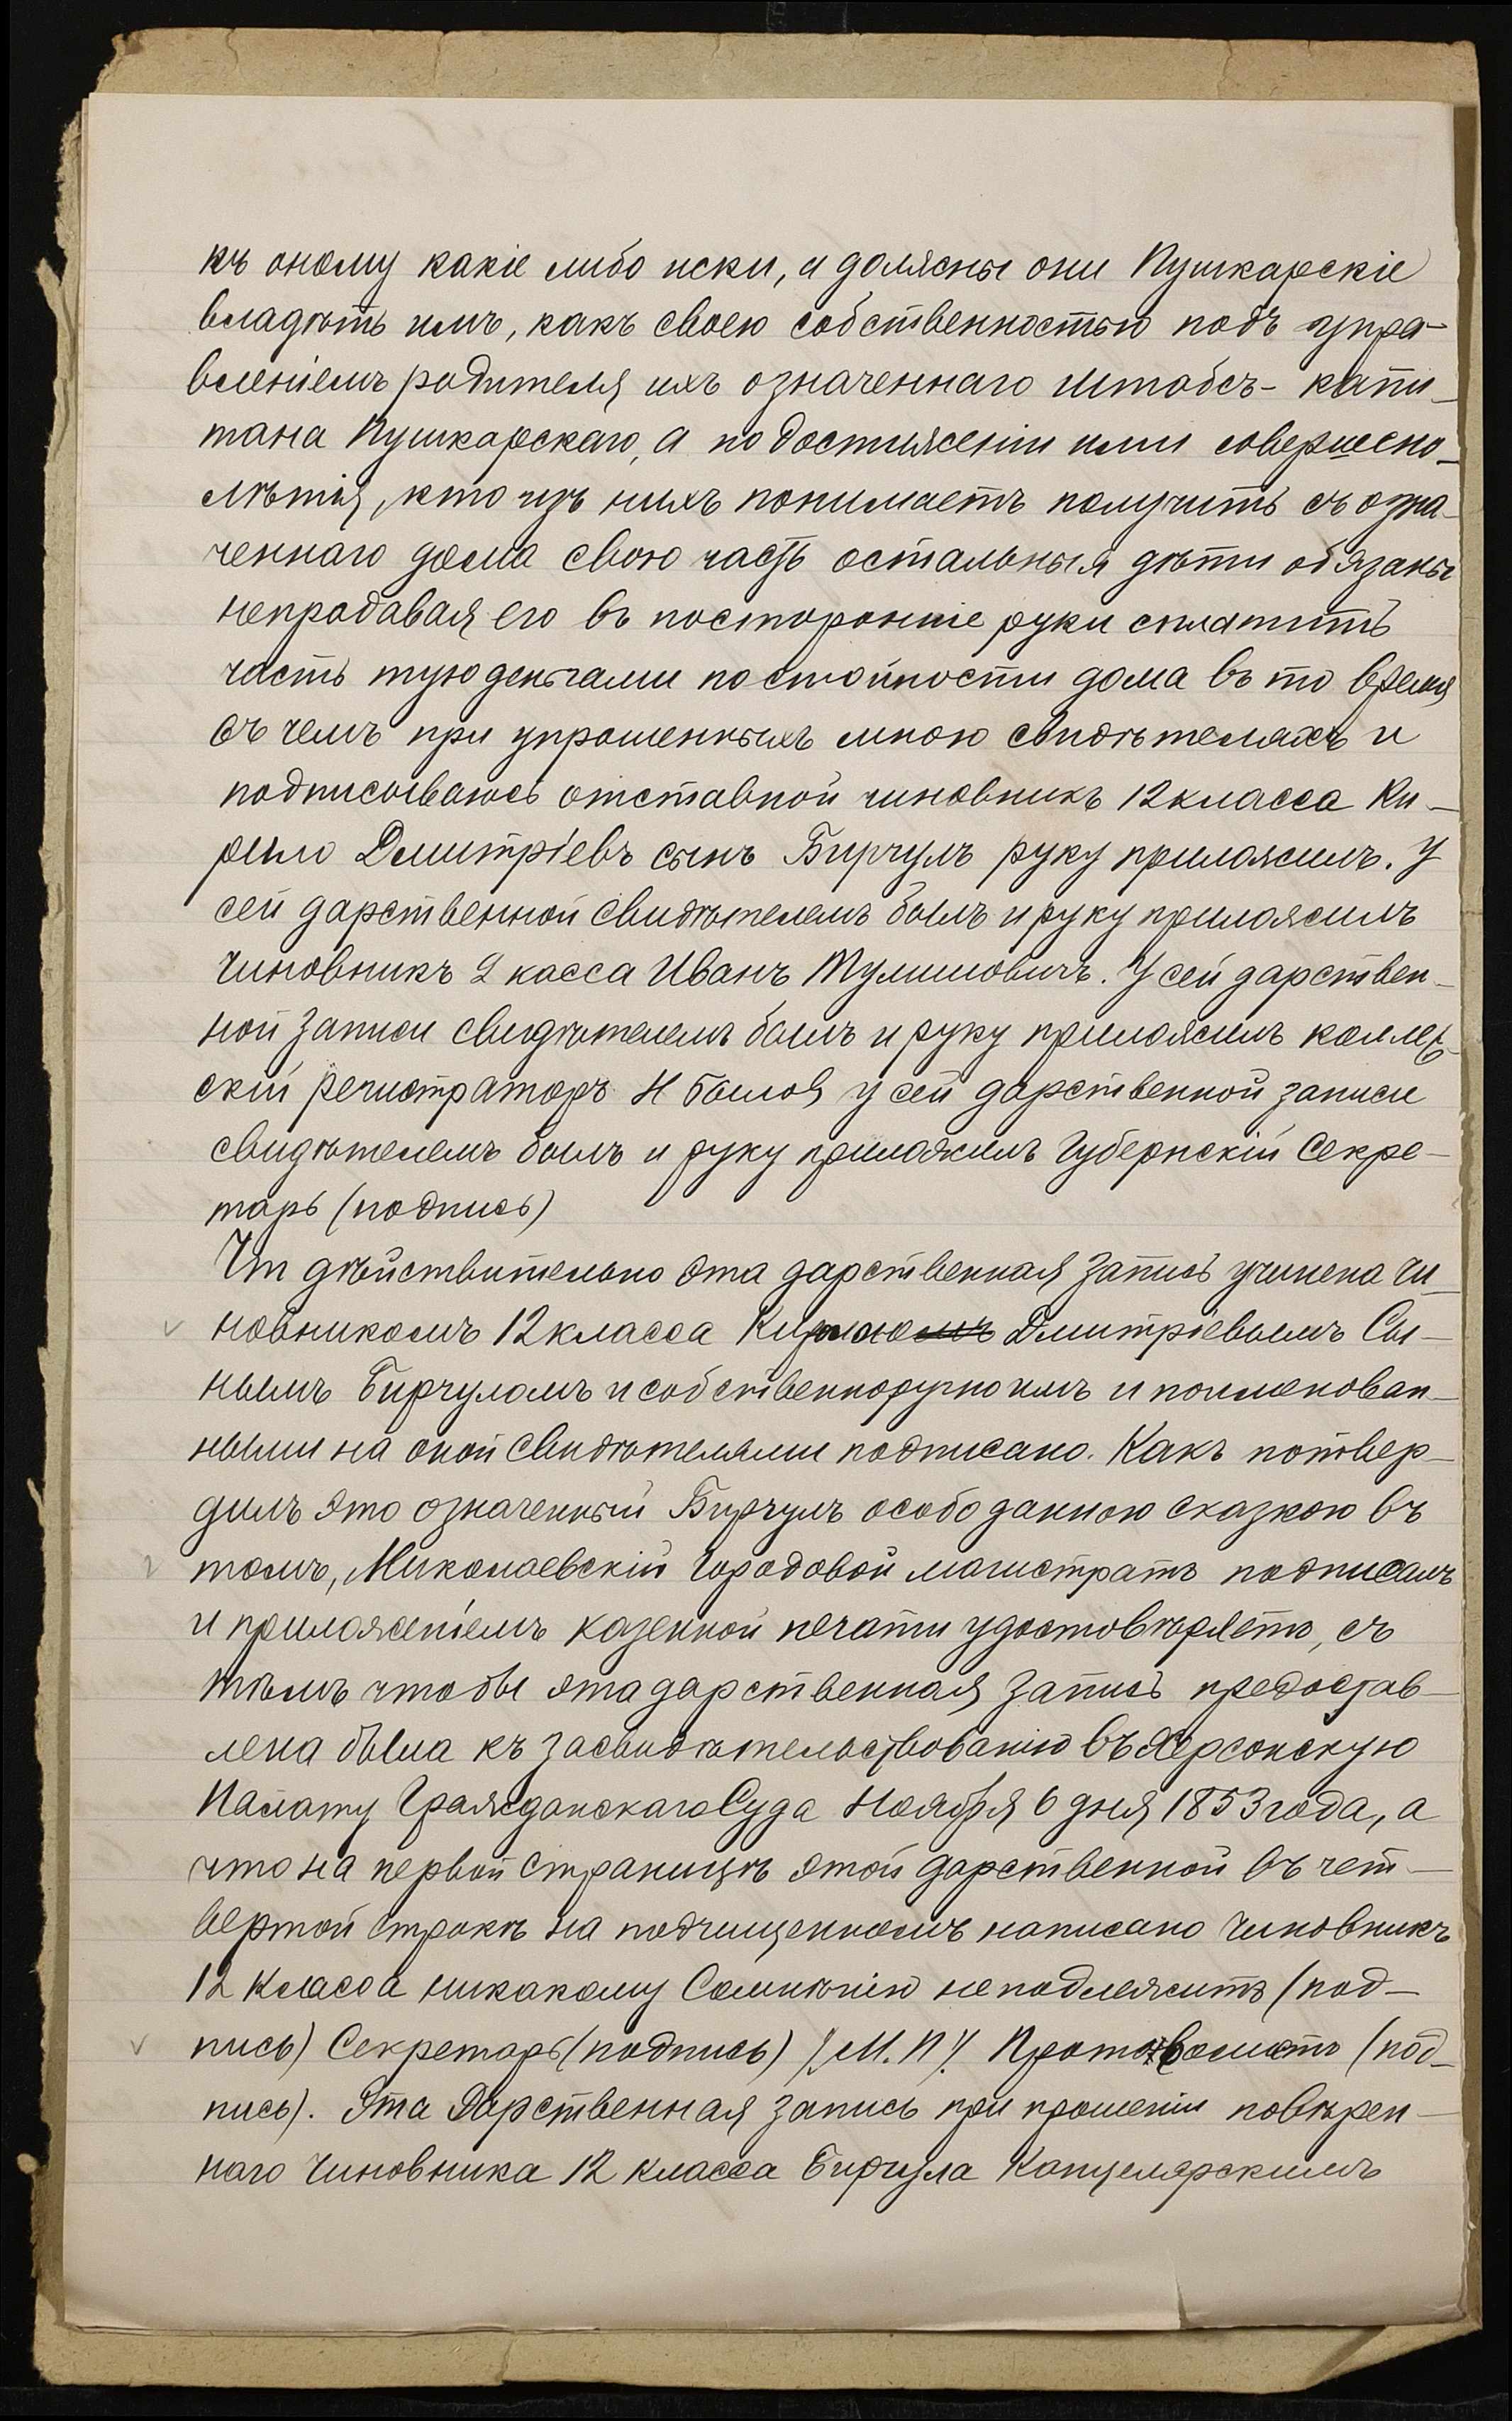 къ оному какіе либо иски, а должны они Пушкарскіе
владѣть имъ, какъ своею собственностью подъ упра-
вленіемъ родителя ихъ означеннаго штабсъ-капи-
тана Пушкарскаго, а по достиженіи ими совершено-
лѣтія, кто изъ нихъ понимаетъ получить съ озна-
ченнаго дома свою часть остальныя дѣти обязаны
непродавая его въ посторонніе руки сплатить
часть тую деньгами по стойности дома въ то время
въ чемъ при упрошенныхъ мною свидѣтеляхъ и
подписываюсь отставной чиновникъ 12 класса Ки-
рило Дмитріевъ сынъ Бирчулъ руку приложилъ. У
сей дарственной свидѣтелемъ былъ и руку приложилъ
Чиновникъ 9 касса Иванъ Тулиновичъ. У сей дарствен-
ной записи свидѣтелемъ былъ и руку приложилъ коллеж-
скій регистраторъ Н Былов у сей дарственной записи
свидѣтелемъ былъ и руку приложилъ Губернскій Секре-
тарь (подпись)
Что дѣйствительно эта дарственная запись учинена чи-
новникомъ 12 класса Кириломъ Дмитріевымъ Сы-
нымъ Бирчуломъ и собственноручно имъ и поименован-
ными на оной свидѣтелями подписано. Какъ потвер-
дилъ это означенный Бирчулъ особо данною сказкою въ
томъ, Николаевскій Городовой магистратъ подписалъ
и приложеніемъ казенной печати удостовѣряетъ, съ
тѣмъ чтобы эта дарственная запись предостав-
лена была къ засвидѣтельствованію въ Херсонскую
Палату Гражданскаго Суда Ноября 6 дня 1853 года, а
что на первой страницѣ этой дарственной въ чет-
вертой строкѣ на подчищенномъ написано Чиновникъ
12 Класса никакому Сомнѣнію не подлежитъ (под-
пись) Секретарь (подпись) /М.П./ (под-
пись). Эта Дарственная запись при прошеніи повѣрен-
наго Чиновника 12 класса Бирчула Канцелярскимъ